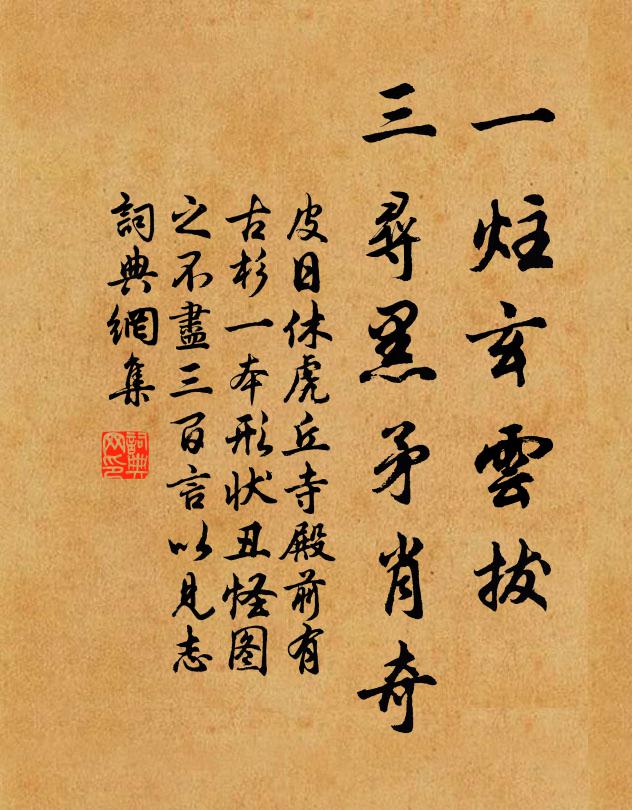 一炷玄雲拔
三尋黑矛肖奇
皮日休虎丘寺殿前有
古杉一本形狀丑怪图
之不盡三百言以見志
詞典網集
詞典
网印